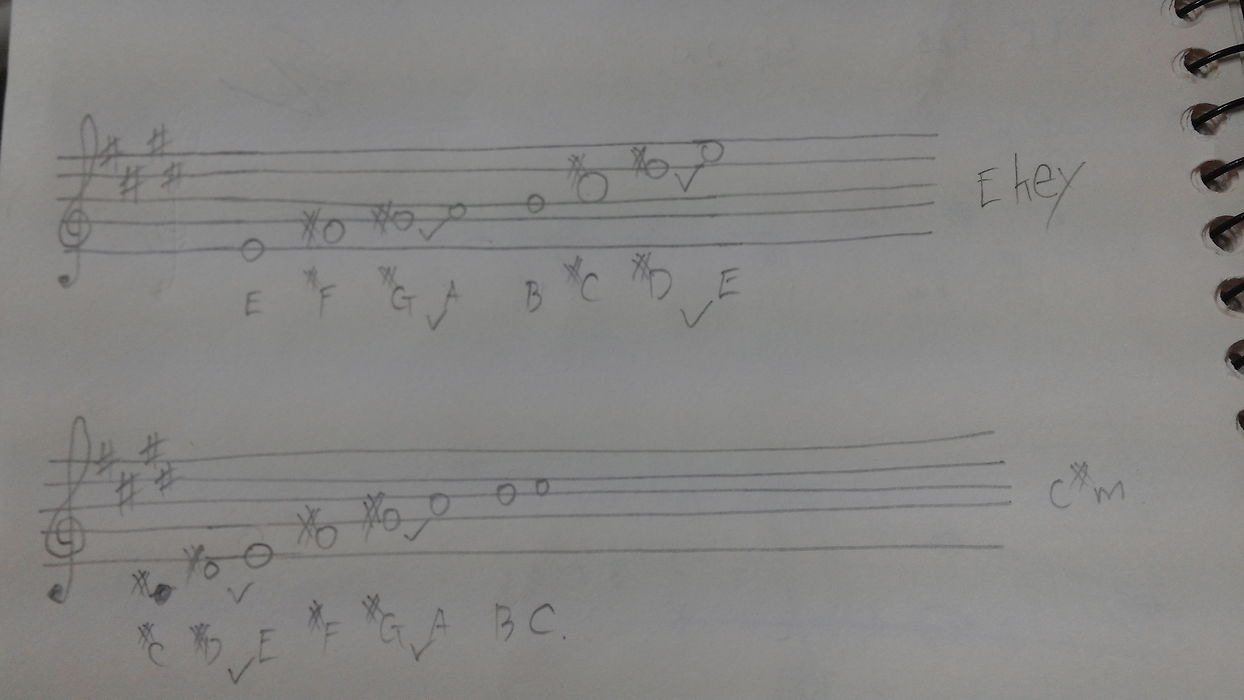 E key
E #F #G A B #C #D E
C#m
#C #D E #F #G A B C.